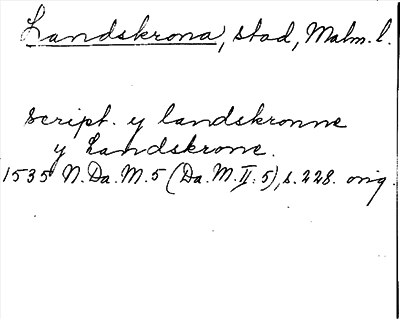 Landskrona, stad, Malm. l.
script. y landskronne
y Landskrone.
1535 N. Da. M. 5 (Da. M. II: 5), s. 228. orig.